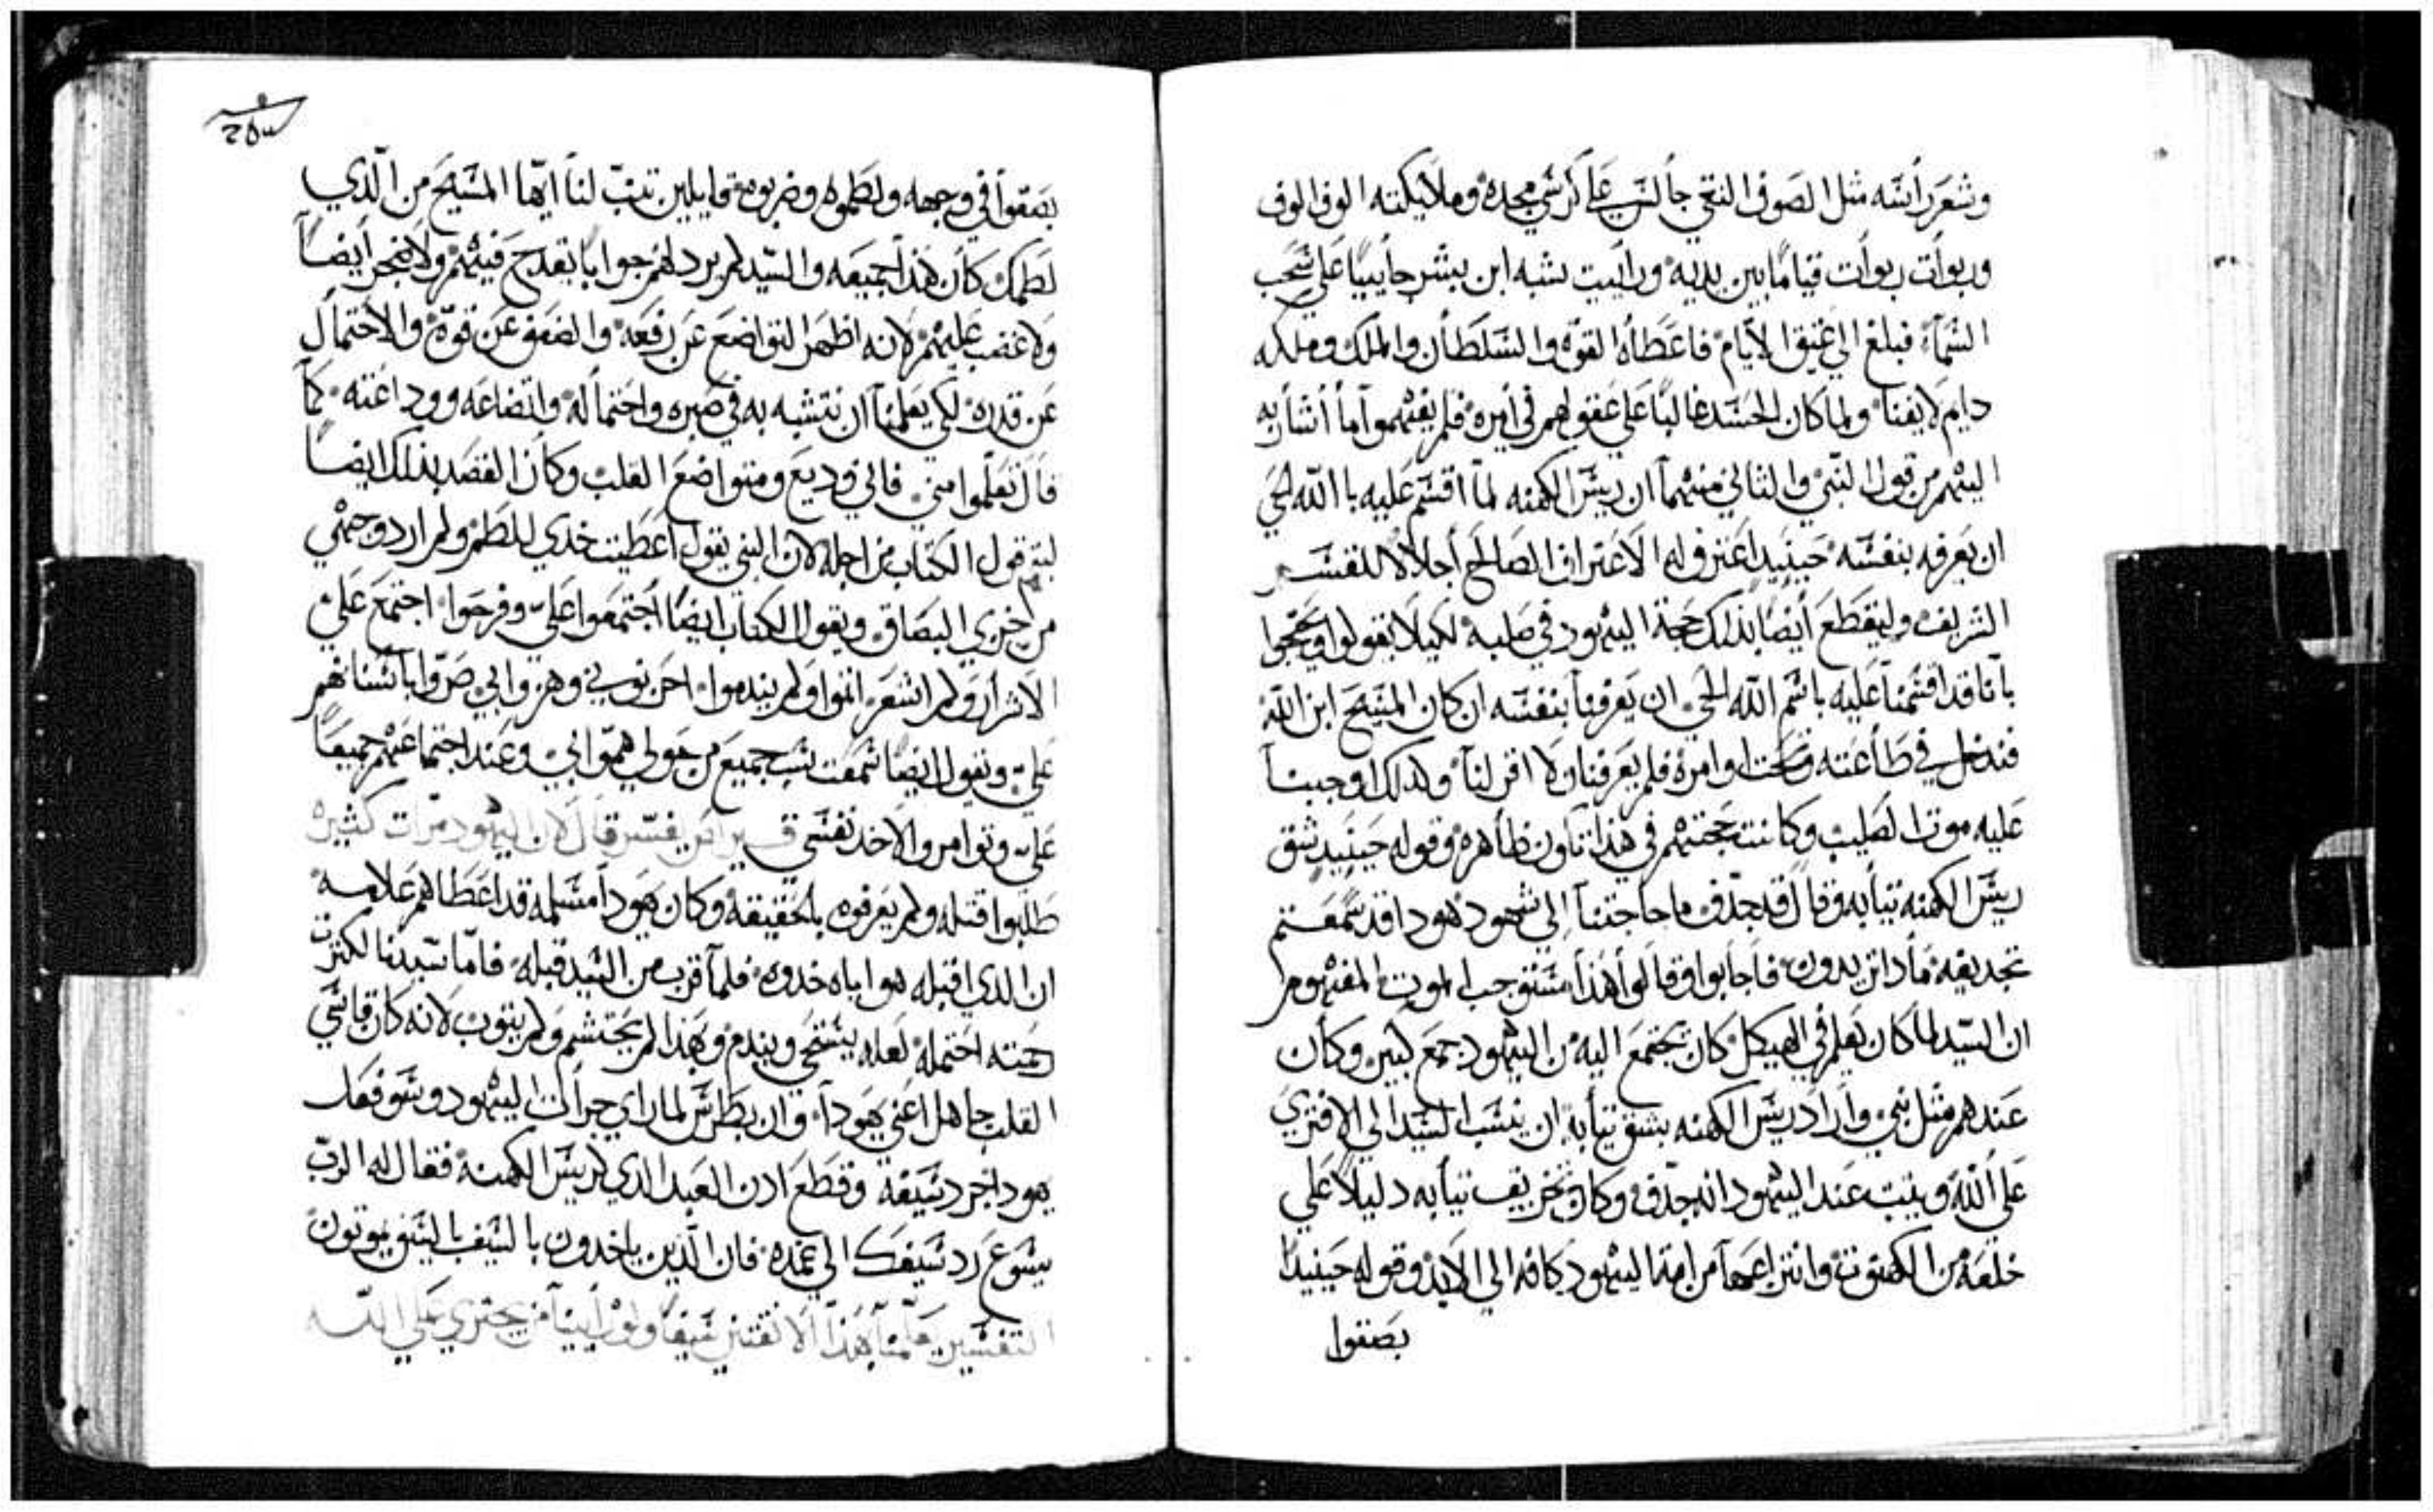 وشعر راسه مثل الصوف النقي جالس على كرسي مجده وملايكته الوف الوف
وربوات ربوات قياما بين يديه ورايت شبه ابن بشر جاييا على سحب
السماء فبلغ الى عتيق الايام فاعطاه القوه والسلطان والملك وملكه
دايم لا يفنا ولما كان الحسد غالبا على عقولهم في امره فلم يفهموا ما أشار به
اليهم من قول النبي والثاني منهما ان ريس الكهنه لما اقسم عليه بالله الحي
ان يعرفه بنفسه حينيد اعترف له الاعتراف الصالح أجلالا للقسم
الشريف وليقطع أيضا بذلك حجة اليهود في صلبه لكيلا يقولوا ويحتجوا
بانا قد اقسمنا عليه باسم الله الحي ان يعرفنا بنفسه ان كان المسيح ابن الله
فندخل في طاعته وتحت اوامره فلم يعرفنا ولا اقر لنا ولذلك اوجبنا
عليه موت الصليب وكانت حجتهم في هذا تكون ظاهره وقوله حينيد شق
ريس الكهنه تيابه وقال قد جدف ما حاجتنا إلى شهود هودا قد سمعتم
تجديفه مادا تريدون فأجابوا وقالوا هذا مستوجب الموت المفهوم
ان السيد لما كان يعلم في الهيكل كان يجتمع اليه من اليهود جمع كبير وكان
عندهم مثل نبي واراد ريس الكهنه بشق تيابه ان ينسب السيد الي الافتري
على الله ويثبت عند اليهود انه جدف وكان تخريف تيابه دليلا علي
خلعه من الكهنوت وانتزاعها من امة اليهود كافه الي الابد وقوله حينيدا
بصقوا
٢٥٣
بصقوا في وجهه ولطموه وضربوه قايلين تنب لنا ايها المسيح من الذي
لطمك كان هذا جميعه والسيد لم يرد لهم جوابا يقدح فيهم ولا ضجر أيضا
ولا غضب عليهم لانه اظهر التواضع عن رفعه والضعف عن قوة والاحتمال
عن قدره لكي يعلمنا ان نتشبه به في صبره واحتماله واتضاعه ووداعته كما
قال تعلموا مني فاني وديع ومتواضع القلب وكان القصد بذلك ايضا
ليتم قول الكتاب من اجله لان النبي يقول اعطيت خدي للطم ولم ارد وجهي
من خزي البصاق ويقول الكتاب ايضا اجتمعوا علي وفرحوا اجتمع علي
الاشرار ولم اشعر اتموا ولم يندموا احزنوني وهزوا بي صروا باسنانهم
علي ويقول ايضا سمعت سب جميع من حولي هموا بي وعند اجتماعهم جميعا
علي وتوامروا لاخد نفسي قال لان اليهود مرات كثيره
طلبوا قتله ولم يعرفوه بالحقيقه وكان يهودا مسلمه قد اعطاهم علامه
ان الدي اقبله هو اياه خدوه فلما قرب من السيد قبله فاما سيدنا لكثرت
رحمته احتمله لعله يستحي ويندم وبهذا لم يحتشم ولم يتوب لانه كان قاسي
القلب جاهل اعني يهودا وان بطرس لما راي جرات اليهود وسو فعل
يهودا جرد سيفه وقطع ادن العبد الدي لريس الكهنة فقال له الرب
يسوع رد سيفك الي غمده فان الذين ياخدون بالسيف بالسيف يموتون
التفسير علمنا بهذا الا نقتني سيفا ولو راينا من يجتري على الله